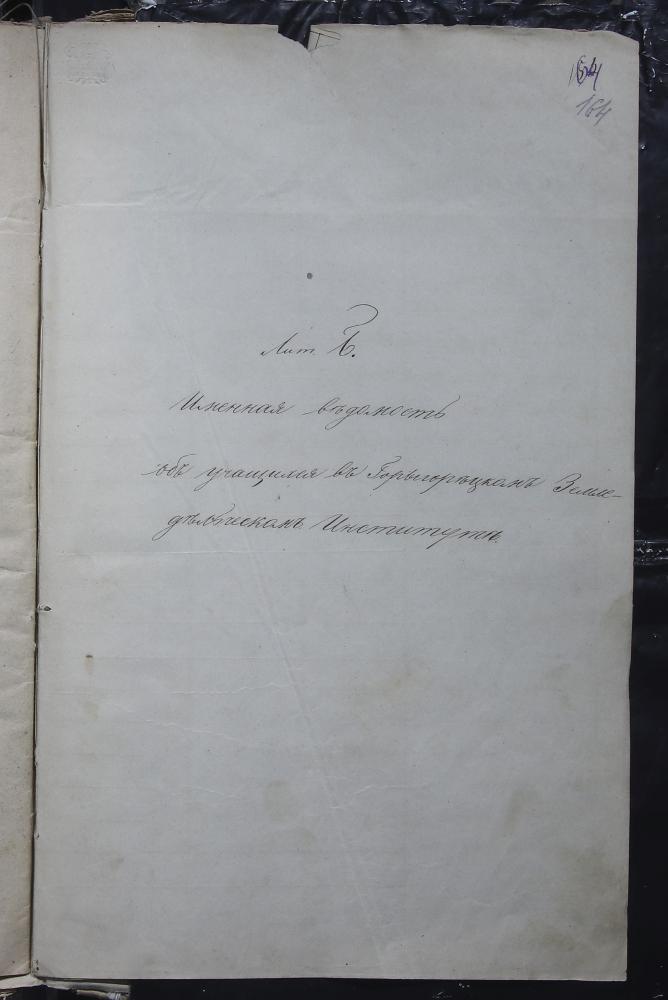 164
164
Лит. Б.
Именная вѣдомость
объ учащихся въ Горыгорѣцкомъ Земле-
дѣльческомъ Институтѣ.